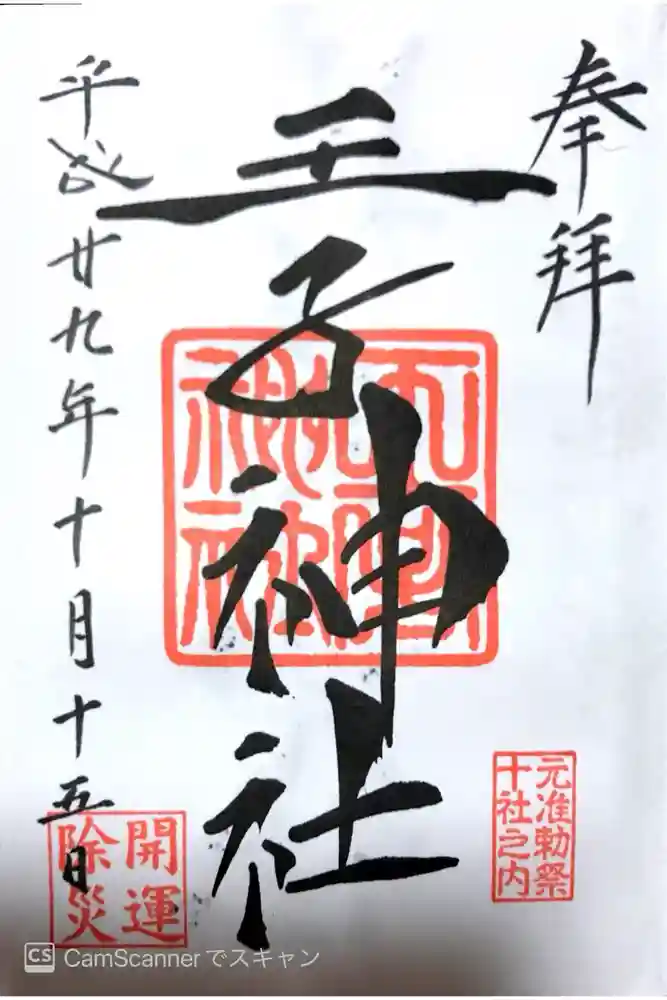 奉拝
王子神社
元准勅祭
十社之内
平成廿九年十月十五日
開運
除災
CS CamScannerでスキャン